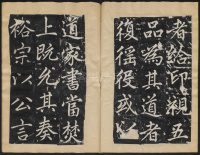 者給印視五
品為其道者
復徭役或
道家書當焚
上既允其奏
裕宗以公言